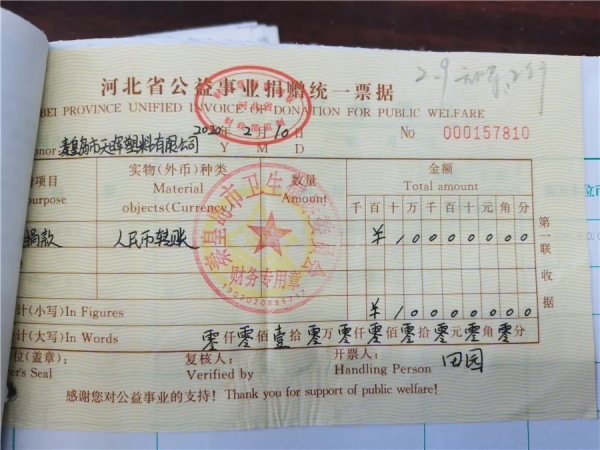 2-9
河北省公益事业捐赠统一票据
BEI PROVINCE UNIFIED INVOICE OF DONATION FOR PUBLIC WELFARE
2020年2月10日
No 000157810
onor: 秦皇岛市天晖塑料有限公司 Y M D
项目 实物(外币)种类 数量 金额
urpose Material Amount Total amount
objects(Currency 千百十万千百十元角分
捐款 人民币转账 ¥10000000
计(小写)In Figures ¥10000000
计(大写)In Words 零仟零佰壹拾零万零仟零佰零拾零元零角零分
位(盖章): 复核人: 开票人: 田园
er's Seal Verified by Handling Person
感谢您对公益事业的支持! Thank you for support of public welfare!
第二联收据
秦皇岛市卫生
财务专用章